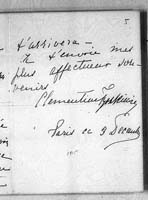 5
t'arrivera —
Je t'envoie mes
plus affectueux sou-
venirs
Clémentine
Paris ce 3 Décembre